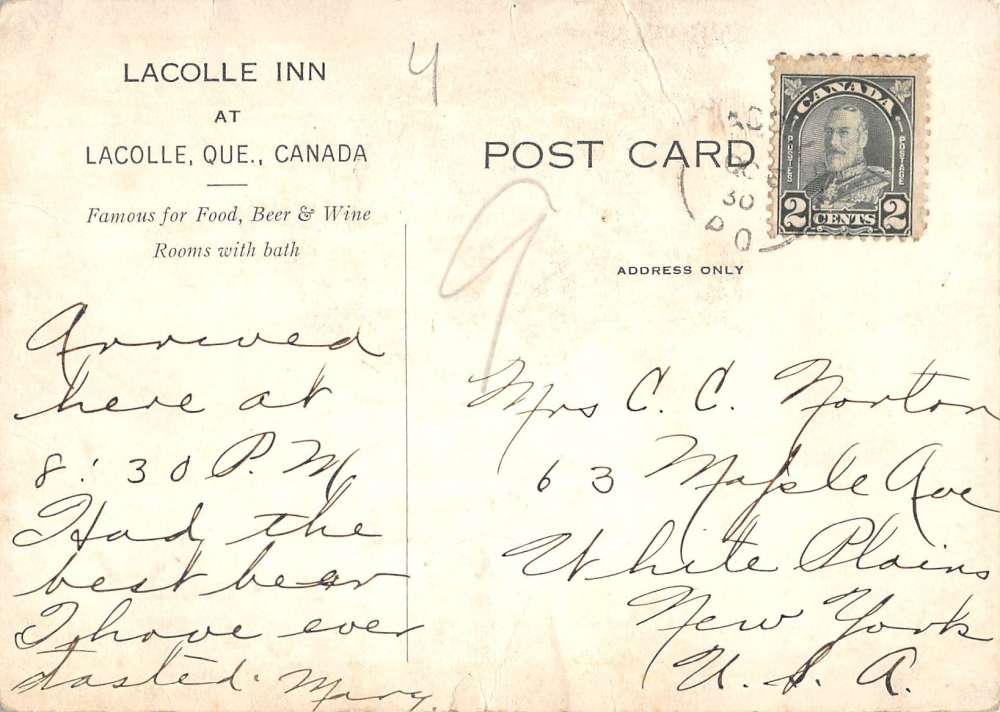 LACOLLE INN
AT
LACOLLE, QUE., CANADA
Famous for Food, Beer & Wine
Rooms with bath
4
POST CARD
ADDRESS ONLY
9
CANADA
POSTES
POSTAGE
2 CENTS 2
30
30
P Q
Arrived
here at
8:30 P.M
Had the
best beer
I have ever
tasted. Mary.
Mrs C. C. Norton
63 Maple Ave
White Plains
New York
U. S. A.